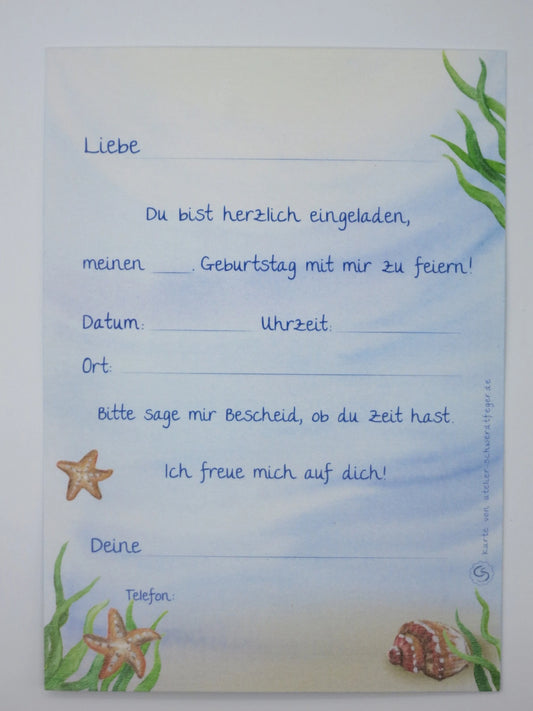 Liebe
Du bist herzlich eingeladen,
meinen ____. Geburtstag mit mir zu feiern!
Datum: Uhrzeit:
Ort:
Bitte sage mir Bescheid, ob du Zeit hast.
Ich freue mich auf dich!
Deine
Telefon:
karte von atelier-schwerdtfeger.de
CS